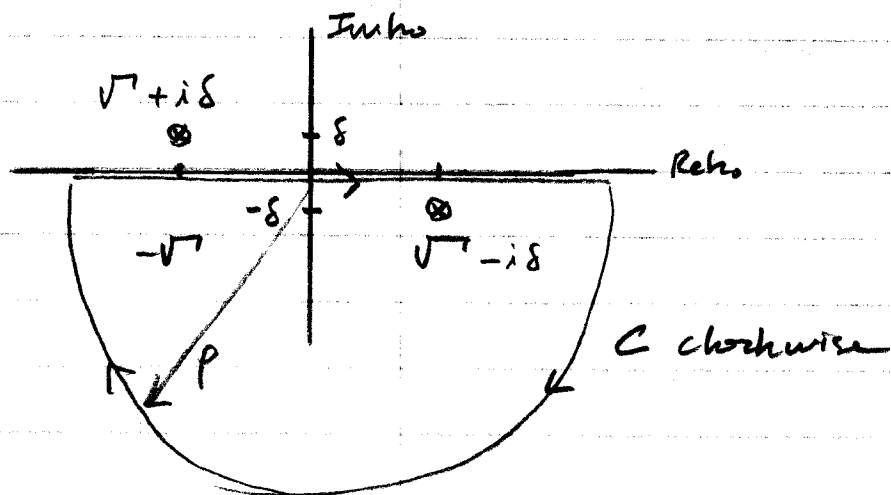 Im k₀
√ + iδ
δ
Re k₀
-δ
-√
√ - iδ
C clockwise
ρ